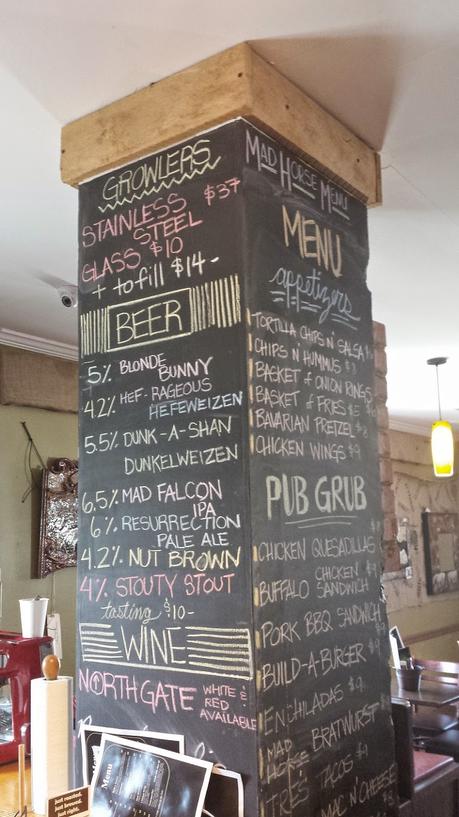 GROWLERS
STAINLESS $37
STEEL
GLASS $10
+ to fill $14-
BEER
5% BLONDE
BUNNY
4.2% HEF-RAGEOUS
HEFEWEIZEN
5.5% DUNK-A-SHAN
DUNKELWEIZEN
6.5% MAD FALCON
IPA
6% RESURRECTION
PALE ALE
4.2% NUT BROWN
4% STOUTY STOUT
tasting $10-
WINE
NORTHGATE WHITE &
RED
AVAILABLE
Menu
just roasted.
just brewed.
just right.
MAD HORSE MENU
MENU
appetizers
TORTILLA CHIPS N' SALSA
CHIPS N HUMMUS
BASKET of ONION RINGS
BASKET of FRIES
BAVARIAN PRETZEL
CHICKEN WINGS $9
PUB GRUB
CHICKEN QUESADILLAS
BUFFALO CHICKEN
SANDWICH
PORK BBQ SANDWICH
BUILD-A-BURGER
ENCHILADAS $9
MAD
HORSE BRATWURST
TRES TACOS
MAC N' CHEESE